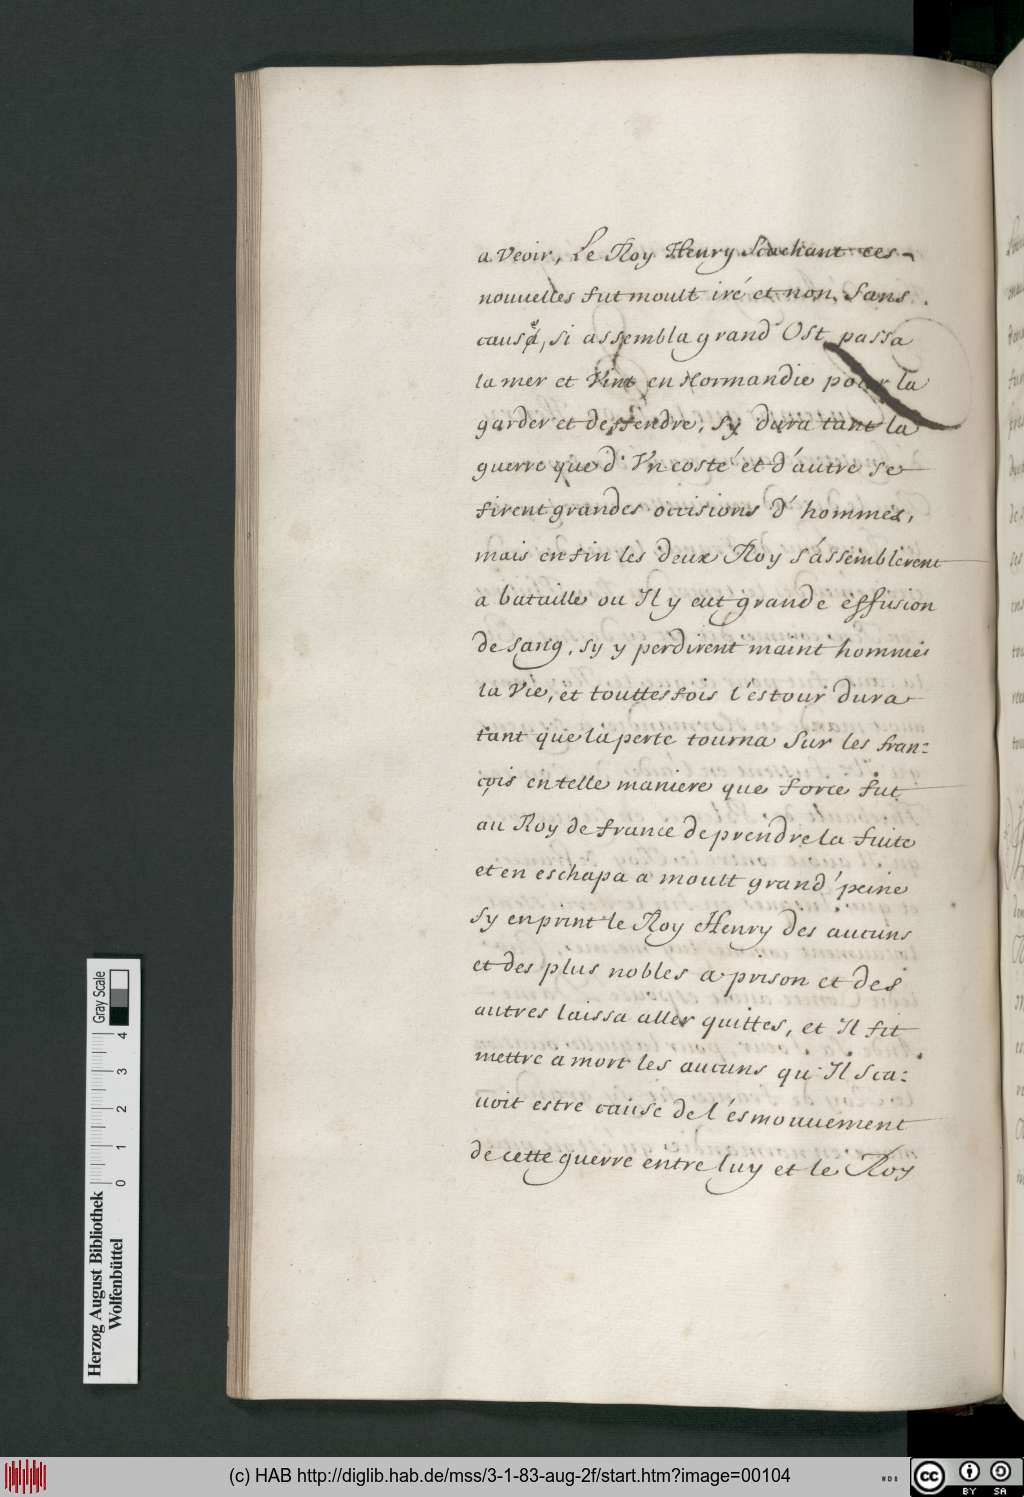 a veoir, Le Roy Henry Scachant ces
nouuelles fut moult iré et non sans
cause, si assembla grand Ost passa
la mer et Vint en Normandie pour la
garder et deffendre, sy dura tant la
guerre que d'Vn costé et d'autre se
firent grandes occisions d'hommes,
mais enfin les deux Roy s'assemblerent
a bataille ou Il y eut grande effusion
de sang, sy y perdirent maint hommes
la Vie, et touttesfois l'estour dura
tant que la perte tourna sur les fran=
çois en telle maniere que force fut
au Roy de france de prendre la fuite
et en eschapa a moult grand' peine
sy en print le Roy Henry des aucuns
et des plus nobles a prison et des
autres laissa aller quittes, et Il fit
mettre a mort les aucuns qu'Il sca=
uoit estre cause de l'esmouuement
de cette guerre entre luy et le Roy
Gray Scale
0 1 2 3 4
Herzog August Bibliothek
Wolfenbüttel
(c) HAB http://diglib.hab.de/mss/3-1-83-aug-2f/start.htm?image=00104
cc BY SA